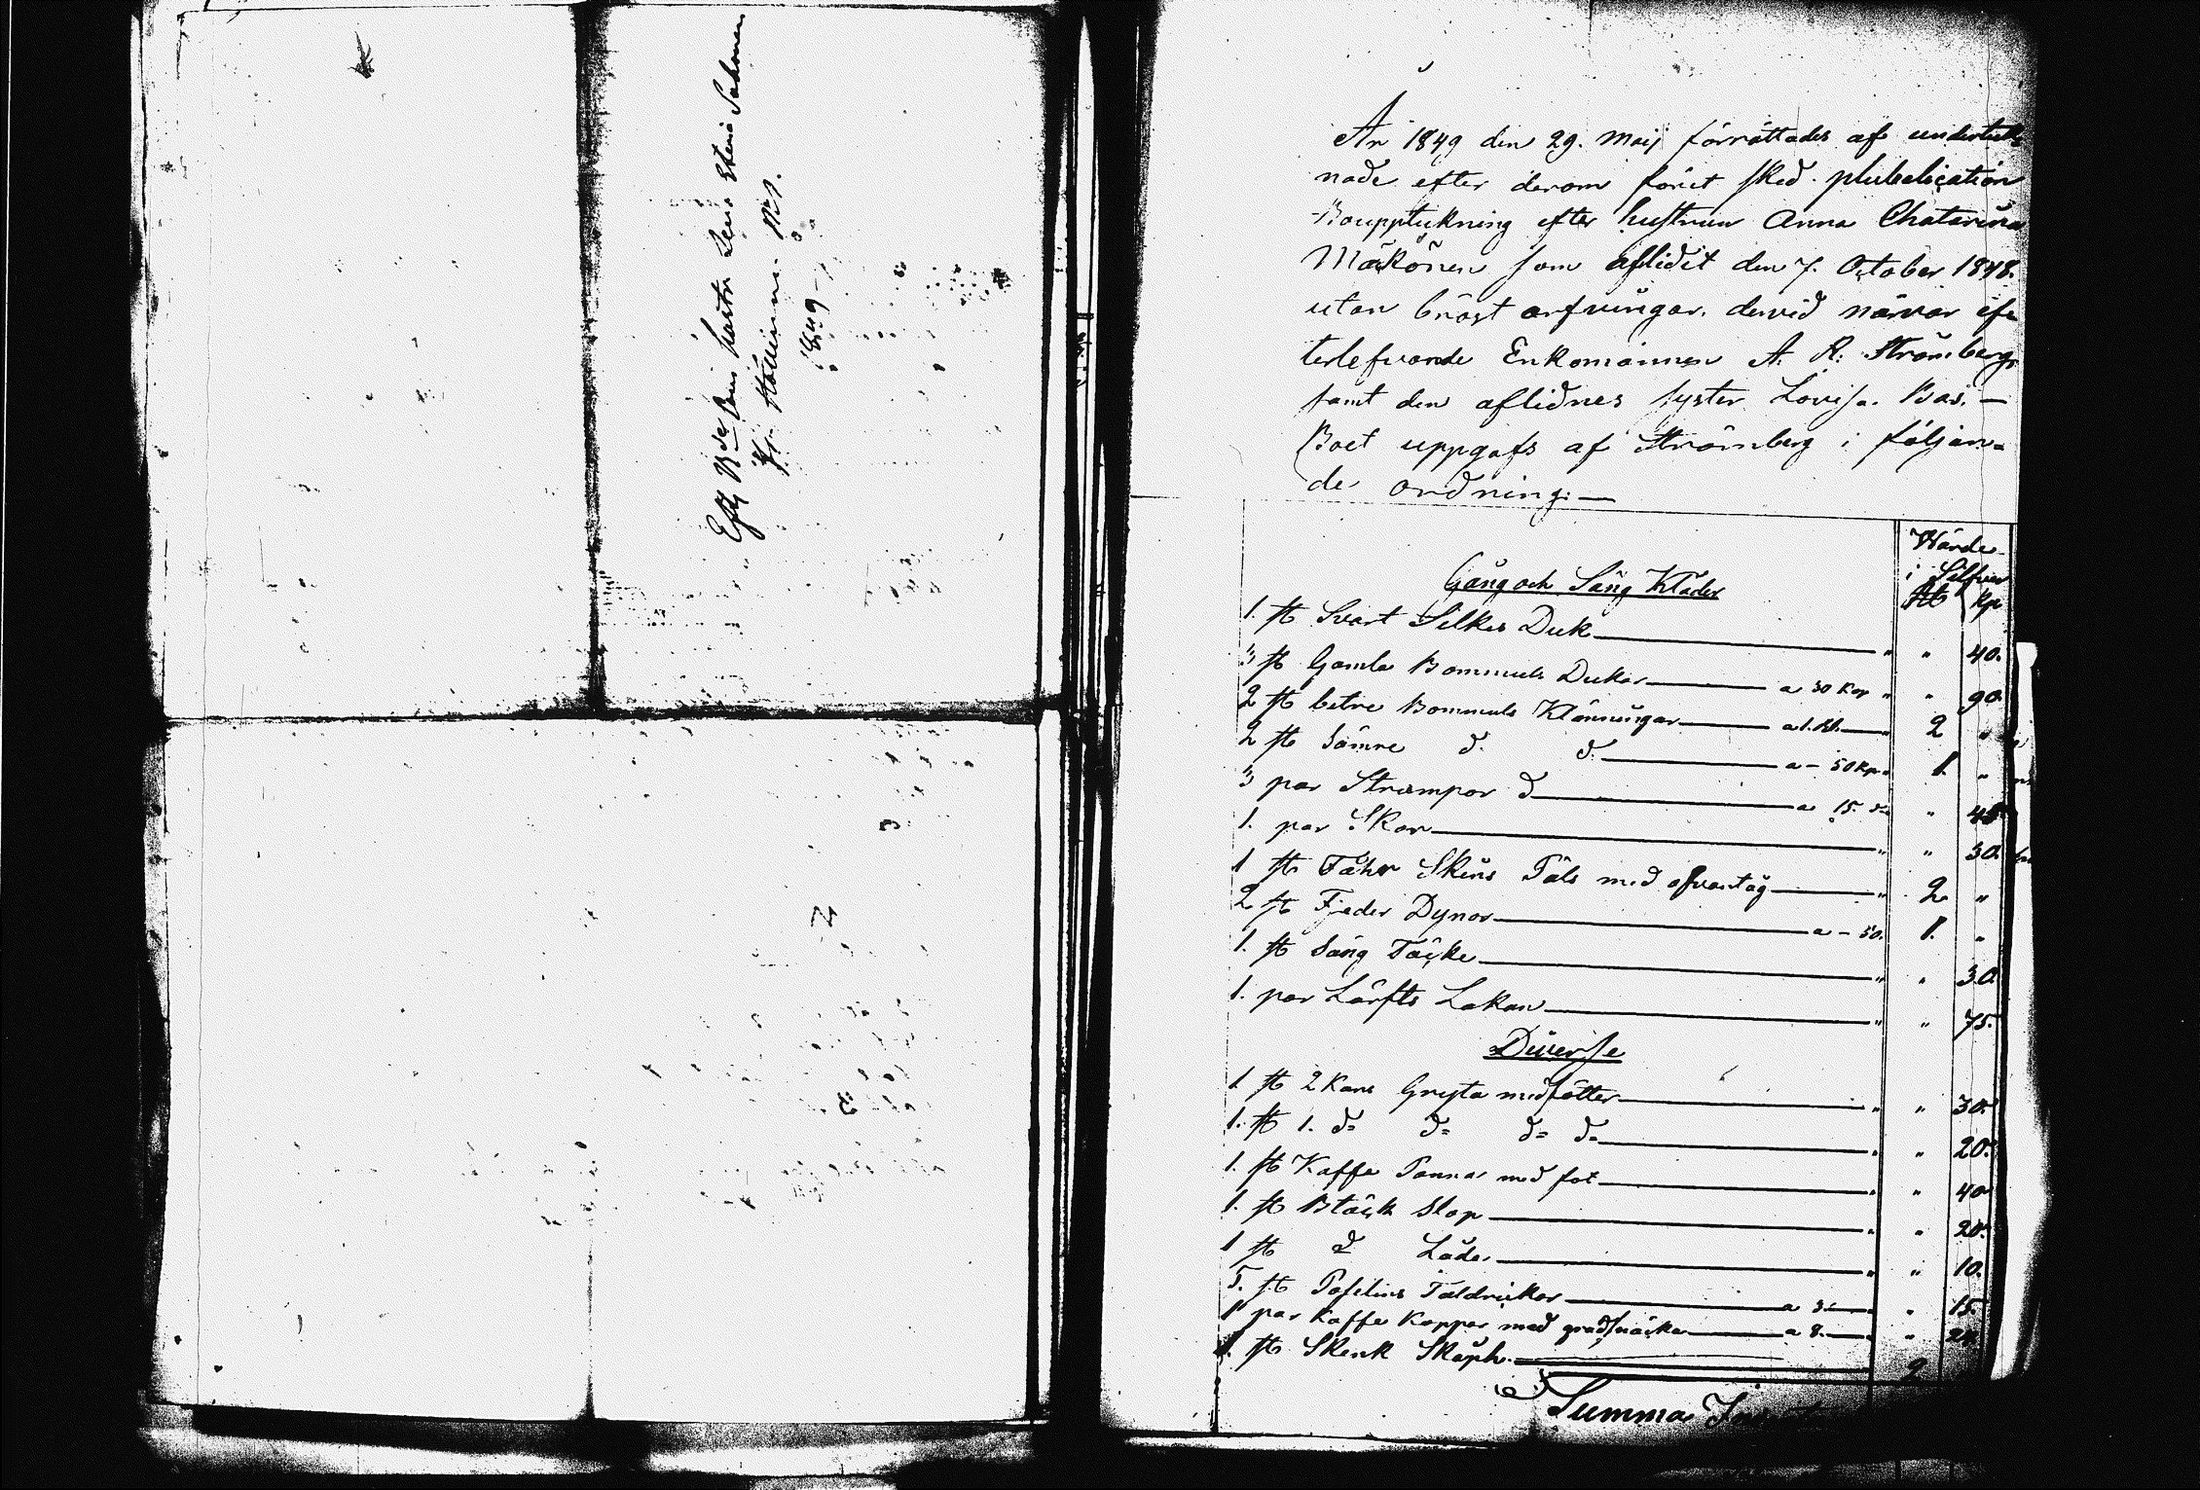 Bou hustru Lena Stina Salonen
1849
År 1849 den 29. Maij förrättades af underteck
nade efter derom förut sked plubelication
Bouppteckning efter hustrun Anna Chatarina
Mäkönen som aflidit den 7. October 1848.
utan bröst arfvingar. dervid närvar ef
terlefvande Enkomannen A. R. Strömberg
samt den aflidnes syster Lovisa Bas. —
Boet uppgafs af Strömberg i följan=
de ordning: —
Wärde
i Silfver
Gång och Säng Kläder
Rb Kp
1. st Svart Silkes Duk " " 40.
3 st Gamla Bommuls Dukar a 30 Kop " " 90.
2 st betre Bommuls Klänningar a 1. Rb. " 2 "
2 st Sämre d. d. a - 50 Kp. 1. "
3 par Strumpor d a 15. d= " 45
1. par Skor " " 30.
1 st Fåhr Skins Päls med öfvertåg " 2 "
2 st Fjeder Dynor a - 50. 1. "
1. st Säng Täcke " " 30
1. par Lärfts Lakan " " 75.
Diverse
1. st 2 Kans Gryta med fötter " " 30.
1. st 1. d= d= d= d= " 20.
1. st Kaffe Panna med fot " " 40
1. st Bläck Stop " " 20.
1 st d Låda " " 10.
5. st Poselins Taldrickor a 3. " 15.
par Kaffe Koppar med gradsnäcka a 8. " 24
1. st Skenk Skåp 2
Summa